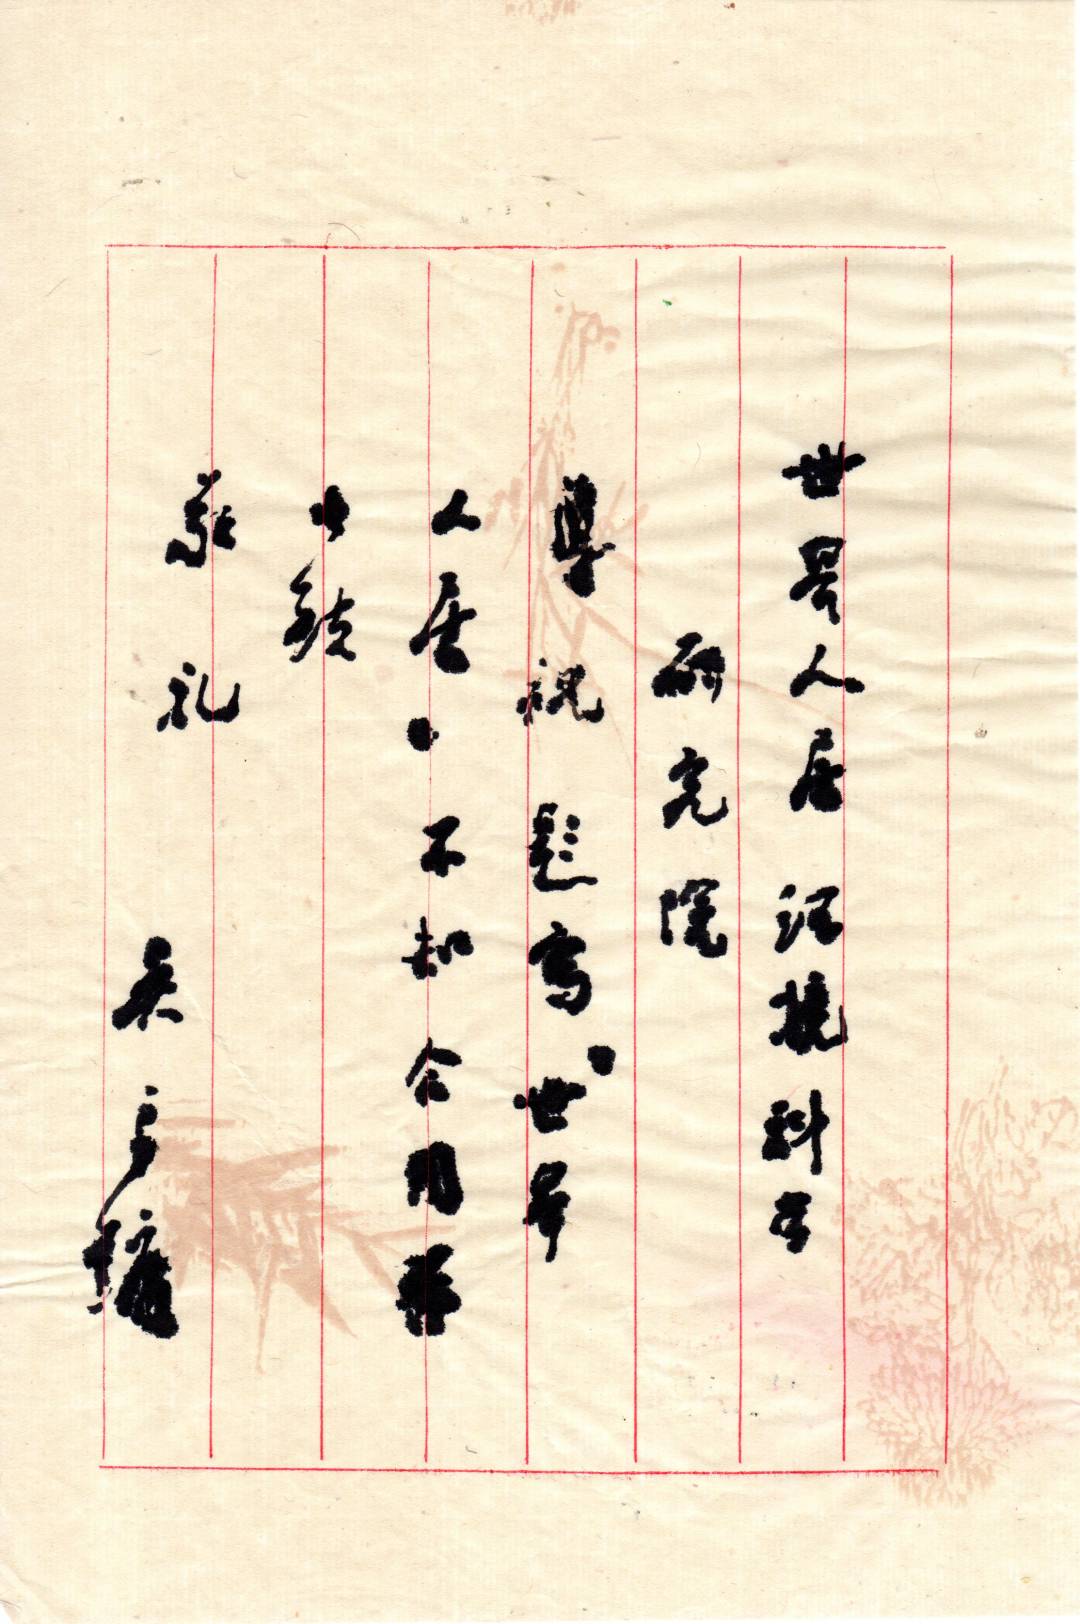 世界人居环境科学
研究院
祝题写“世界
人居”不知合用否
此致
敬礼
吴良镛